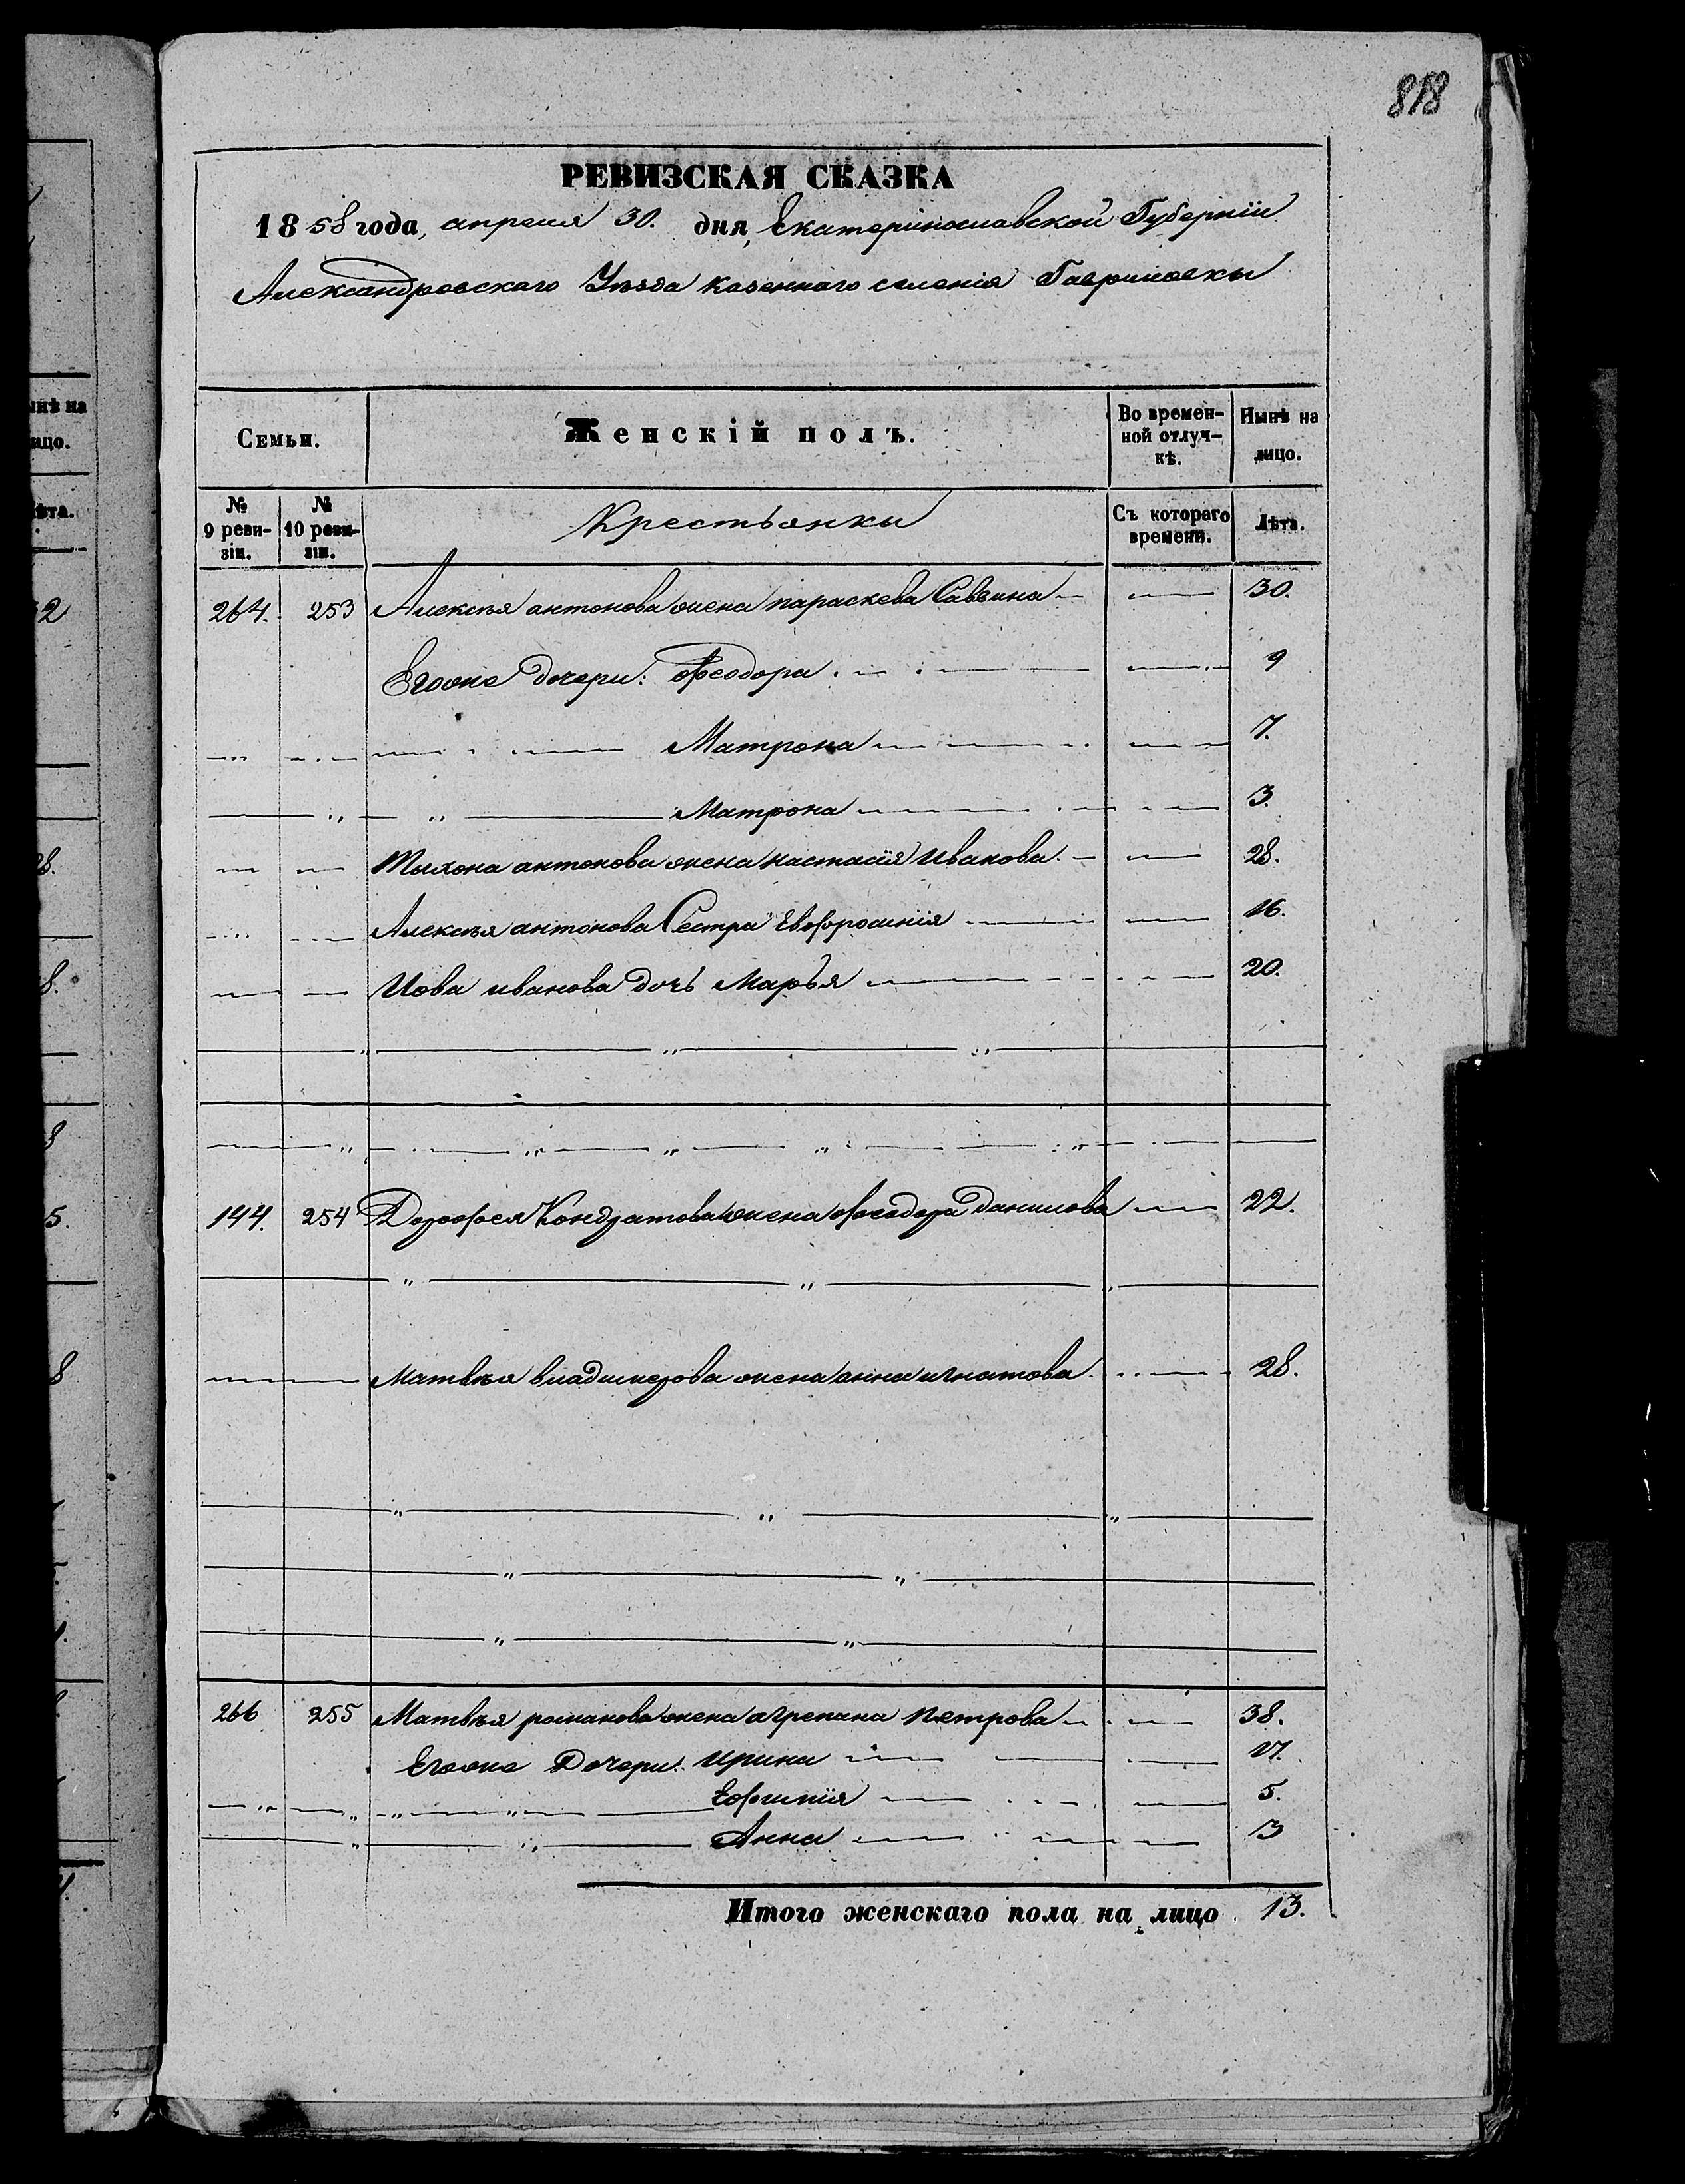 818
РЕВИЗСКАЯ СКАЗКА
1858 года, апреля 30. дня, Екатеринославской Губернiи
Александровскаго Уѣзда казеннаго селенiя Гавриловки
Семьи. Женскiй полъ. Во времен- Нынѣ на
ной отлуч- лицо.
кѣ.
№ № Крестьянки Съ котораго Лѣта.
9 реви- 10 реви- времени.
зiи. зiи.
264. 253 Алексѣя антонова жена параскева Саввина 30.
Егоже дочери: Феодора 9
Матрона 7.
Матрона 3.
Тихона антонова жена настасiя Иванова 28.
Алексѣя антонова Сестра Евфросинiя 16.
Иова иванова дочь Марья 20.
144. 254 Дорофея Кондратова жена феодора Данилова 22.
Матвѣя владимерова жена анна игнатова 28.
266 255 Матвѣя романова жена агрепана петрова 38.
Егоже Дочери: Ирина 17.
Ефимiя 5.
Анна 3
Итого женскаго пола на лицо 13.